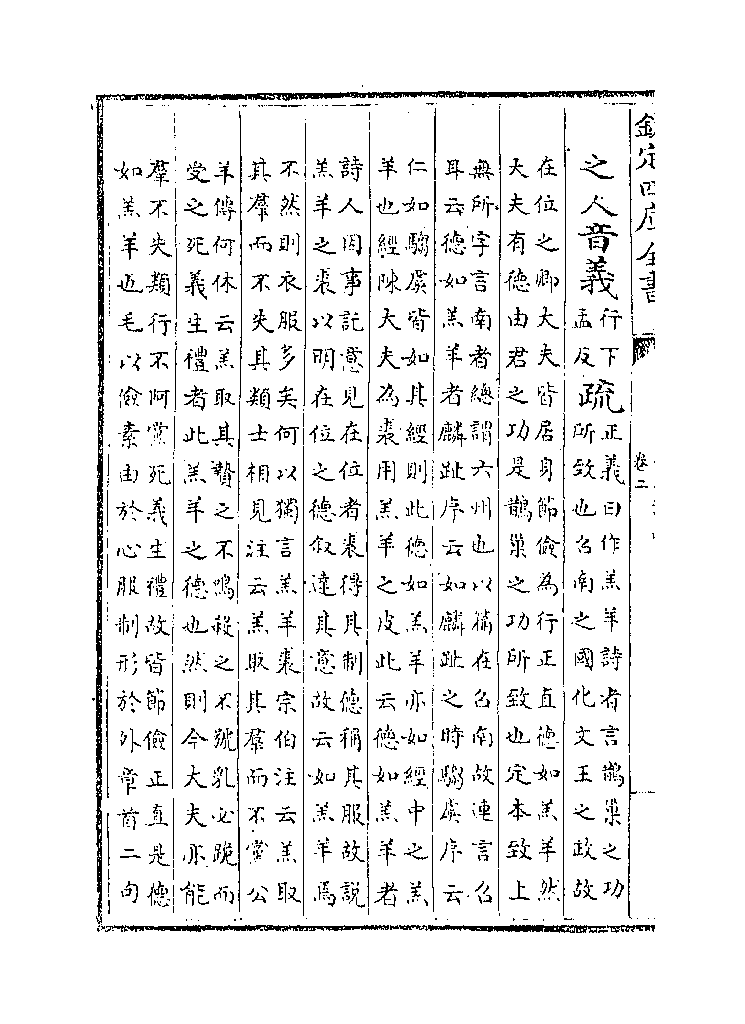 欽定四庫全書
卷二
之人音義
行下
孟反
疏
正義曰作羔羊詩者言鵲巢之功
所致也召南之國化文王之政故
在位之卿大夫皆居身節儉為行正直德如羔羊然
大夫有德由君之功是鵲巢之功所致也定本致上
無所字言南者總謂六州也以篇在召南故連言召
耳云德如羔羊者麟趾序云如麟趾之時騶虞序云
仁如騶虞皆如其經則此德如羔羊亦如經中之羔
羊也經陳大夫為裘用羔羊之皮此云德如羔羊者
詩人因事託意見在位者裘得其制德稱其服故説
羔羊之裘以明在位之德叙達其意故云如羔羊焉
不然則衣服多矣何以獨言羔羊裘宗伯注云羔取
其羣而不失其類士相見注云羔取其羣而不黨公
羊傳何休云羔取其贄之不鳴殺之不號乳必跪而
受之死義生禮者此羔羊之德也然則今大夫亦能
羣不失類行不阿黨死義生禮故皆節儉正直是德
如羔羊也毛以儉素由於心服制形於外章首二句